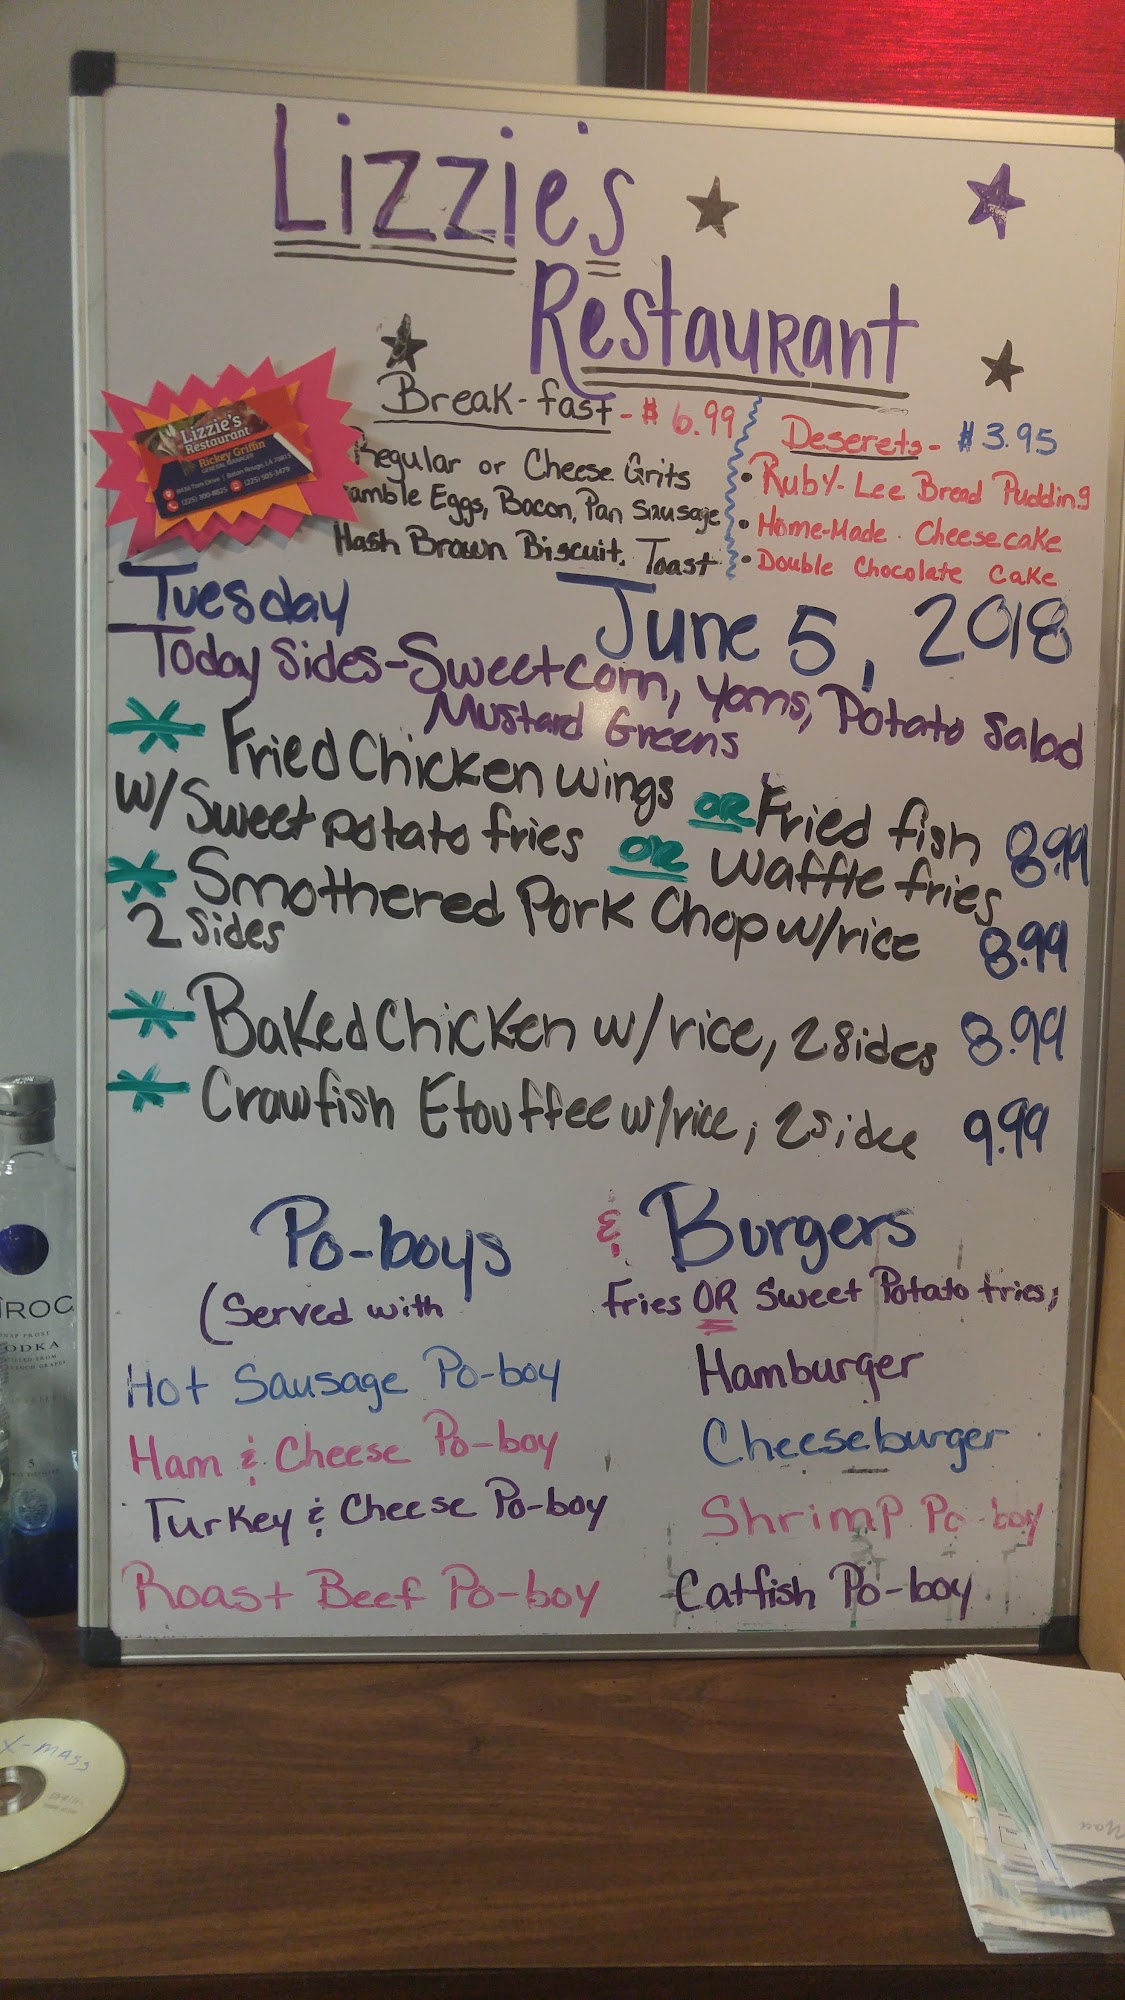 Lizzie's
Restaurant
Break-fast - $6.99
Regular or Cheese Grits
amble Eggs, Bacon, Pan Sausage
Hash Brown Biscuit, Toast
Deserets - $3.95
• Ruby-Lee Bread Pudding
• Home-Made Cheesecake
• Double Chocolate Cake
Lizzie's
Restaurant
Rickey Griffin
GENERAL MANAGER
Tom Drive | Baton Rouge, LA
(225) 505-3479
Tuesday June 5, 2018
Today Sides - Sweetcorn, Yams, Potato Salad
Mustard Greens
* Fried Chicken wings OR Fried fish 8.99
w/ Sweet potato fries OR Waffle fries
* Smothered Pork Chop w/rice 8.99
2 sides
* Baked Chicken w/rice, 2 sides 8.99
* Crawfish Etouffee w/rice, 2 sides 9.99
Po-boys & Burgers
(Served with fries OR Sweet Potato fries,
Hot Sausage Po-boy
Ham & Cheese Po-boy
Turkey & Cheese Po-boy
Roast Beef Po-boy
Hamburger
Cheeseburger
Shrimp Po-boy
Catfish Po-boy
IROC
ODKA
X-mass
You